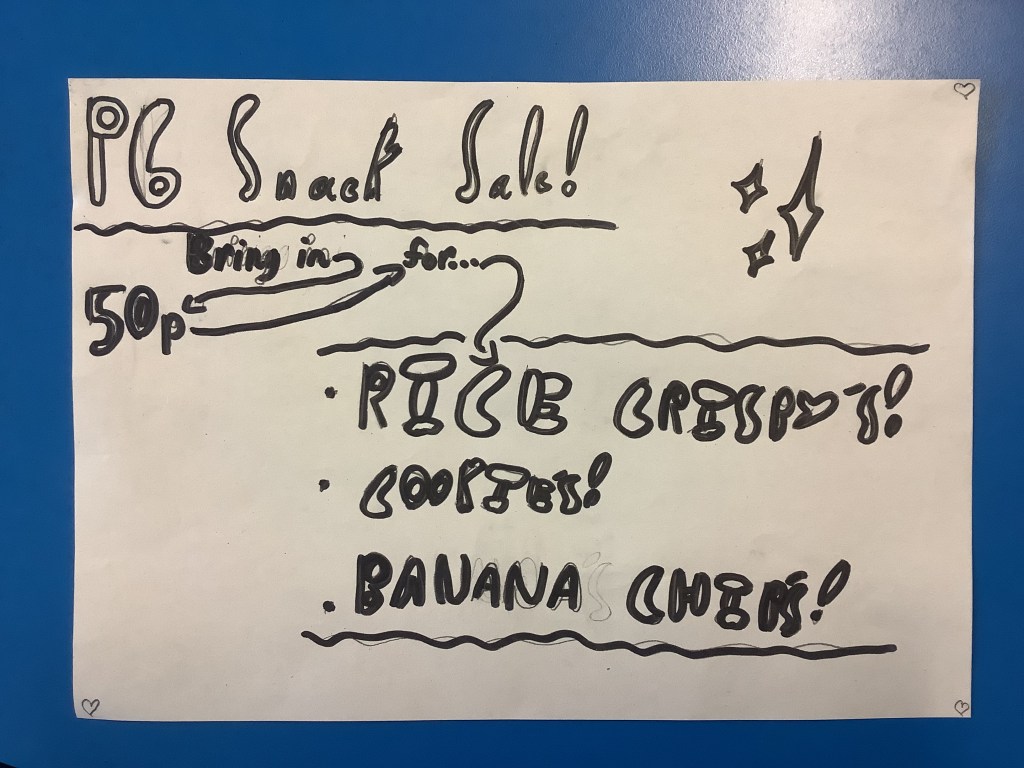 P6 Snack Sale!
Bring in for...
50p
• RICE CRISPY'S!
• COOKIES!
• BANANA CHIPS!